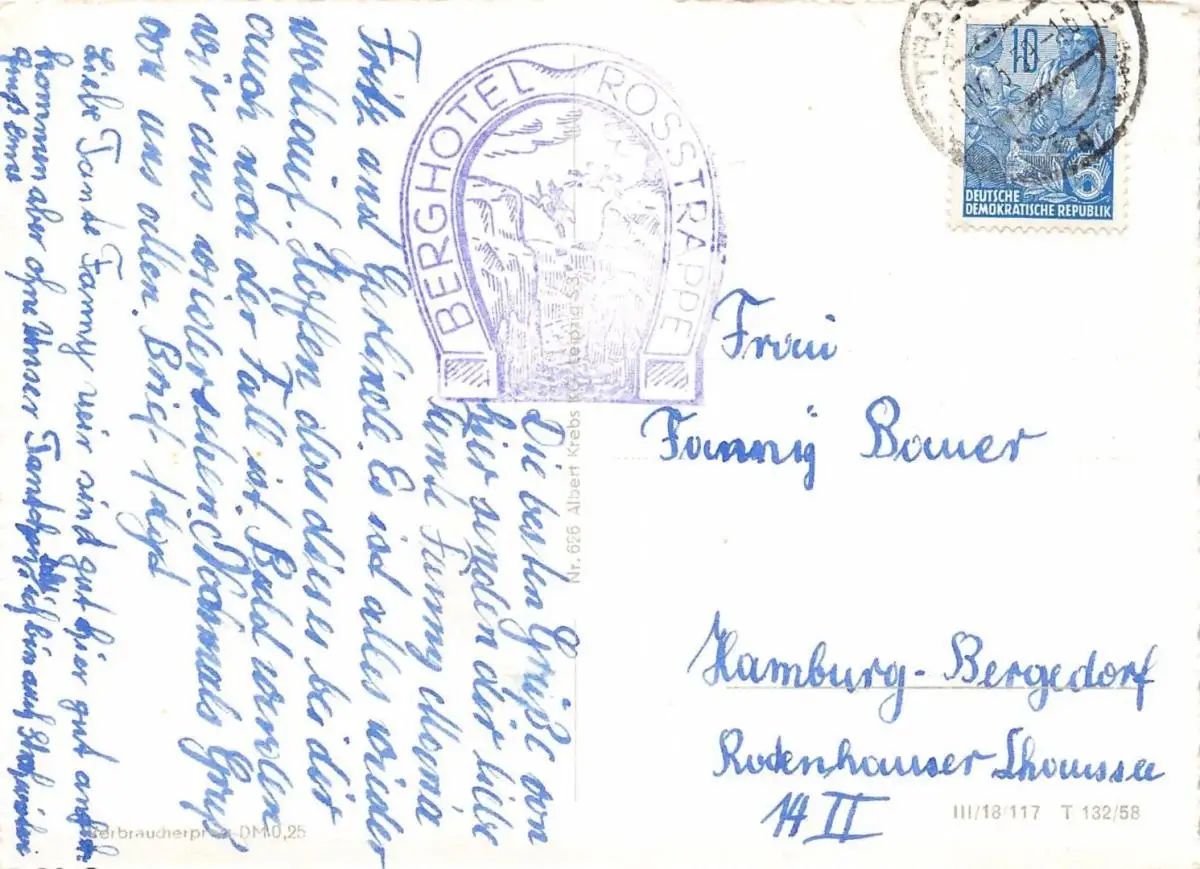 Die besten Grüße von
hier senden dir liebe
Tante Fanny Mama
Fritz und Gerlinde. Es ist alles wieder
wohlauf. Hoffen das dieses bei dir
auch noch der Fall ist. Bald werden
wir uns wiedersehen. Nochmals Grüße
von uns allen. Brief folgt
Liebe Tante Fanny wir sind gut hier gut
kommen aber ohne unser ich bin auf
Gruß
BERGHOTEL ROSSTRAPPE
Nr. 626 Albert Krebs KG. Leipzig S3
Verbraucherpreis DM 0,25
10
DEUTSCHE
DEMOKRATISCHE REPUBLIK
Frau
Fannÿ Bauer
Hamburg-Bergedorf
Rodenhauser Choussee
14 II
III/18/117 T 132/58